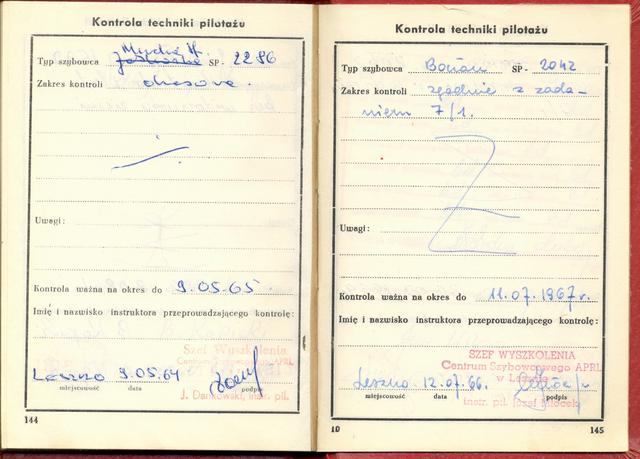 Kontrola techniki pilotażu
Typ szybowca Mucha SP - 2286
Zakres kontroli okresowa.
Uwagi:
Kontrola ważna na okres do 9.05.65.
Imię i nazwisko instruktora przeprowadzającego kontrolę:
Szef Wyszkolenia
Centrum Szybowcowego APRL
Leszno 9.05.64
J. Dankowski, instr. pil.
miejscowość data podpis
144
Kontrola techniki pilotażu
Typ szybowca Bocian SP- 2042
Zakres kontroli zgodnie z zada-
niem 7/1.
Uwagi:
Kontrola ważna na okres do 11.07.1967 r.
Imię i nazwisko instruktora przeprowadzającego kontrolę:
SZEF WYSZKOLENIA
Centrum Szybowcowego APRL
w Lesznie
Leszno 12.07.66.
instr. pil. Józef
miejscowość data podpis
10 145